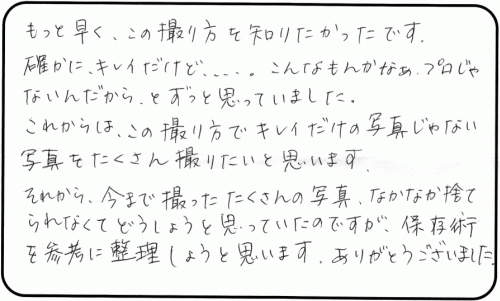 もっと早く、この撮り方を知りたかったです.
確かに、キレイだけど、、、、。こんなもんかなぁ、プロじゃ
ないんだから、とずっと思っていました。
これからは、この撮り方でキレイだけの写真じゃない
写真をたくさん撮りたいと思います.
それから、今まで撮ったたくさんの写真、なかなか捨て
られなくてどうしようと思っていたのですが、保存術
を参考に整理しようと思います. ありがとうございました.